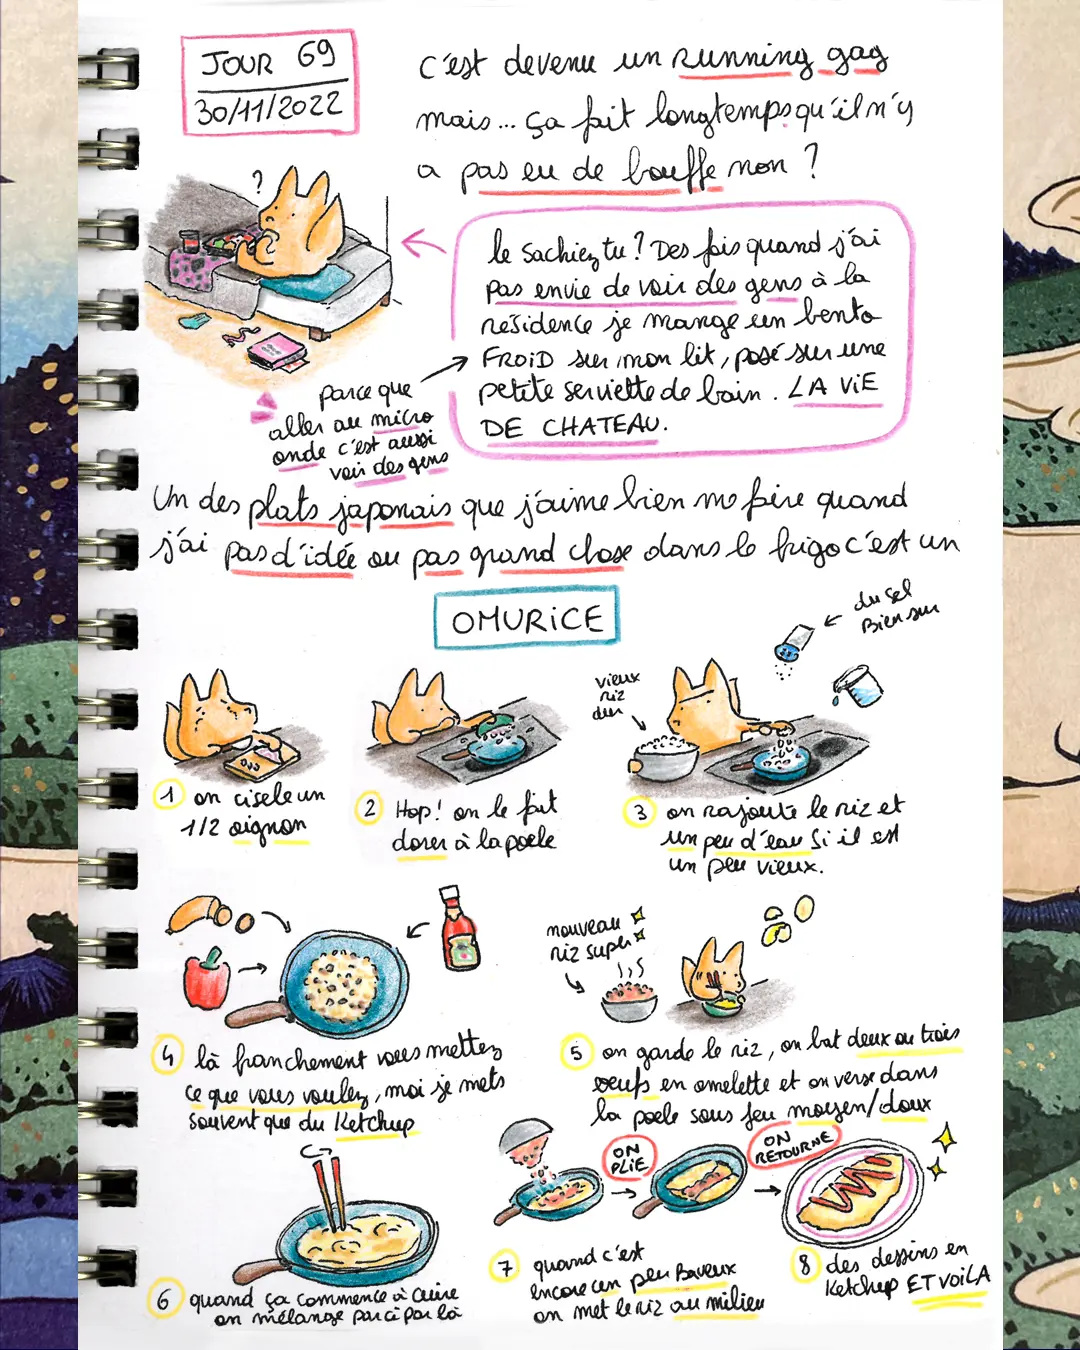 JOUR 69
30/11/2022
c'est devenu un running gag
mais... ça fait longtemps qu'il n'y
a pas eu de bouffe non ?
?
le sachiez tu ? Des fois quand j'ai
pas envie de voir des gens à la
résidence je mange un bento
FROID sur mon lit, posé sur une
petite serviette de bain. LA VIE
DE CHATEAU.
parce que
aller au micro
onde c'est aussi
voir des gens
Un des plats japonais que j'aime bien me faire quand
j'ai pas d'idée ou pas grand chose dans le frigo c'est un
OMURICE
du sel
Bien sur
vieux
riz
dur
1 on cisele un
1/2 oignon
2 Hop! on le fait
dorer à la poele
3 on rajoute le riz et
un peu d'eau si il est
un peu vieux.
nouveau
riz super
4 là franchement vous mettez
ce que vous voulez, moi je mets
souvent que du Ketchup
5 on garde le riz, on bat deux ou trois
oeufs en omelette et on verse dans
la poele sous feu moyen/doux
ON
PLIE
ON
RETOURNE
6 quand ça commence à cuire
on mélange par ci par là
7 quand c'est
encore un peu Baveux
on met le riz au milieu
8 des dessins en
Ketchup ET VOILA